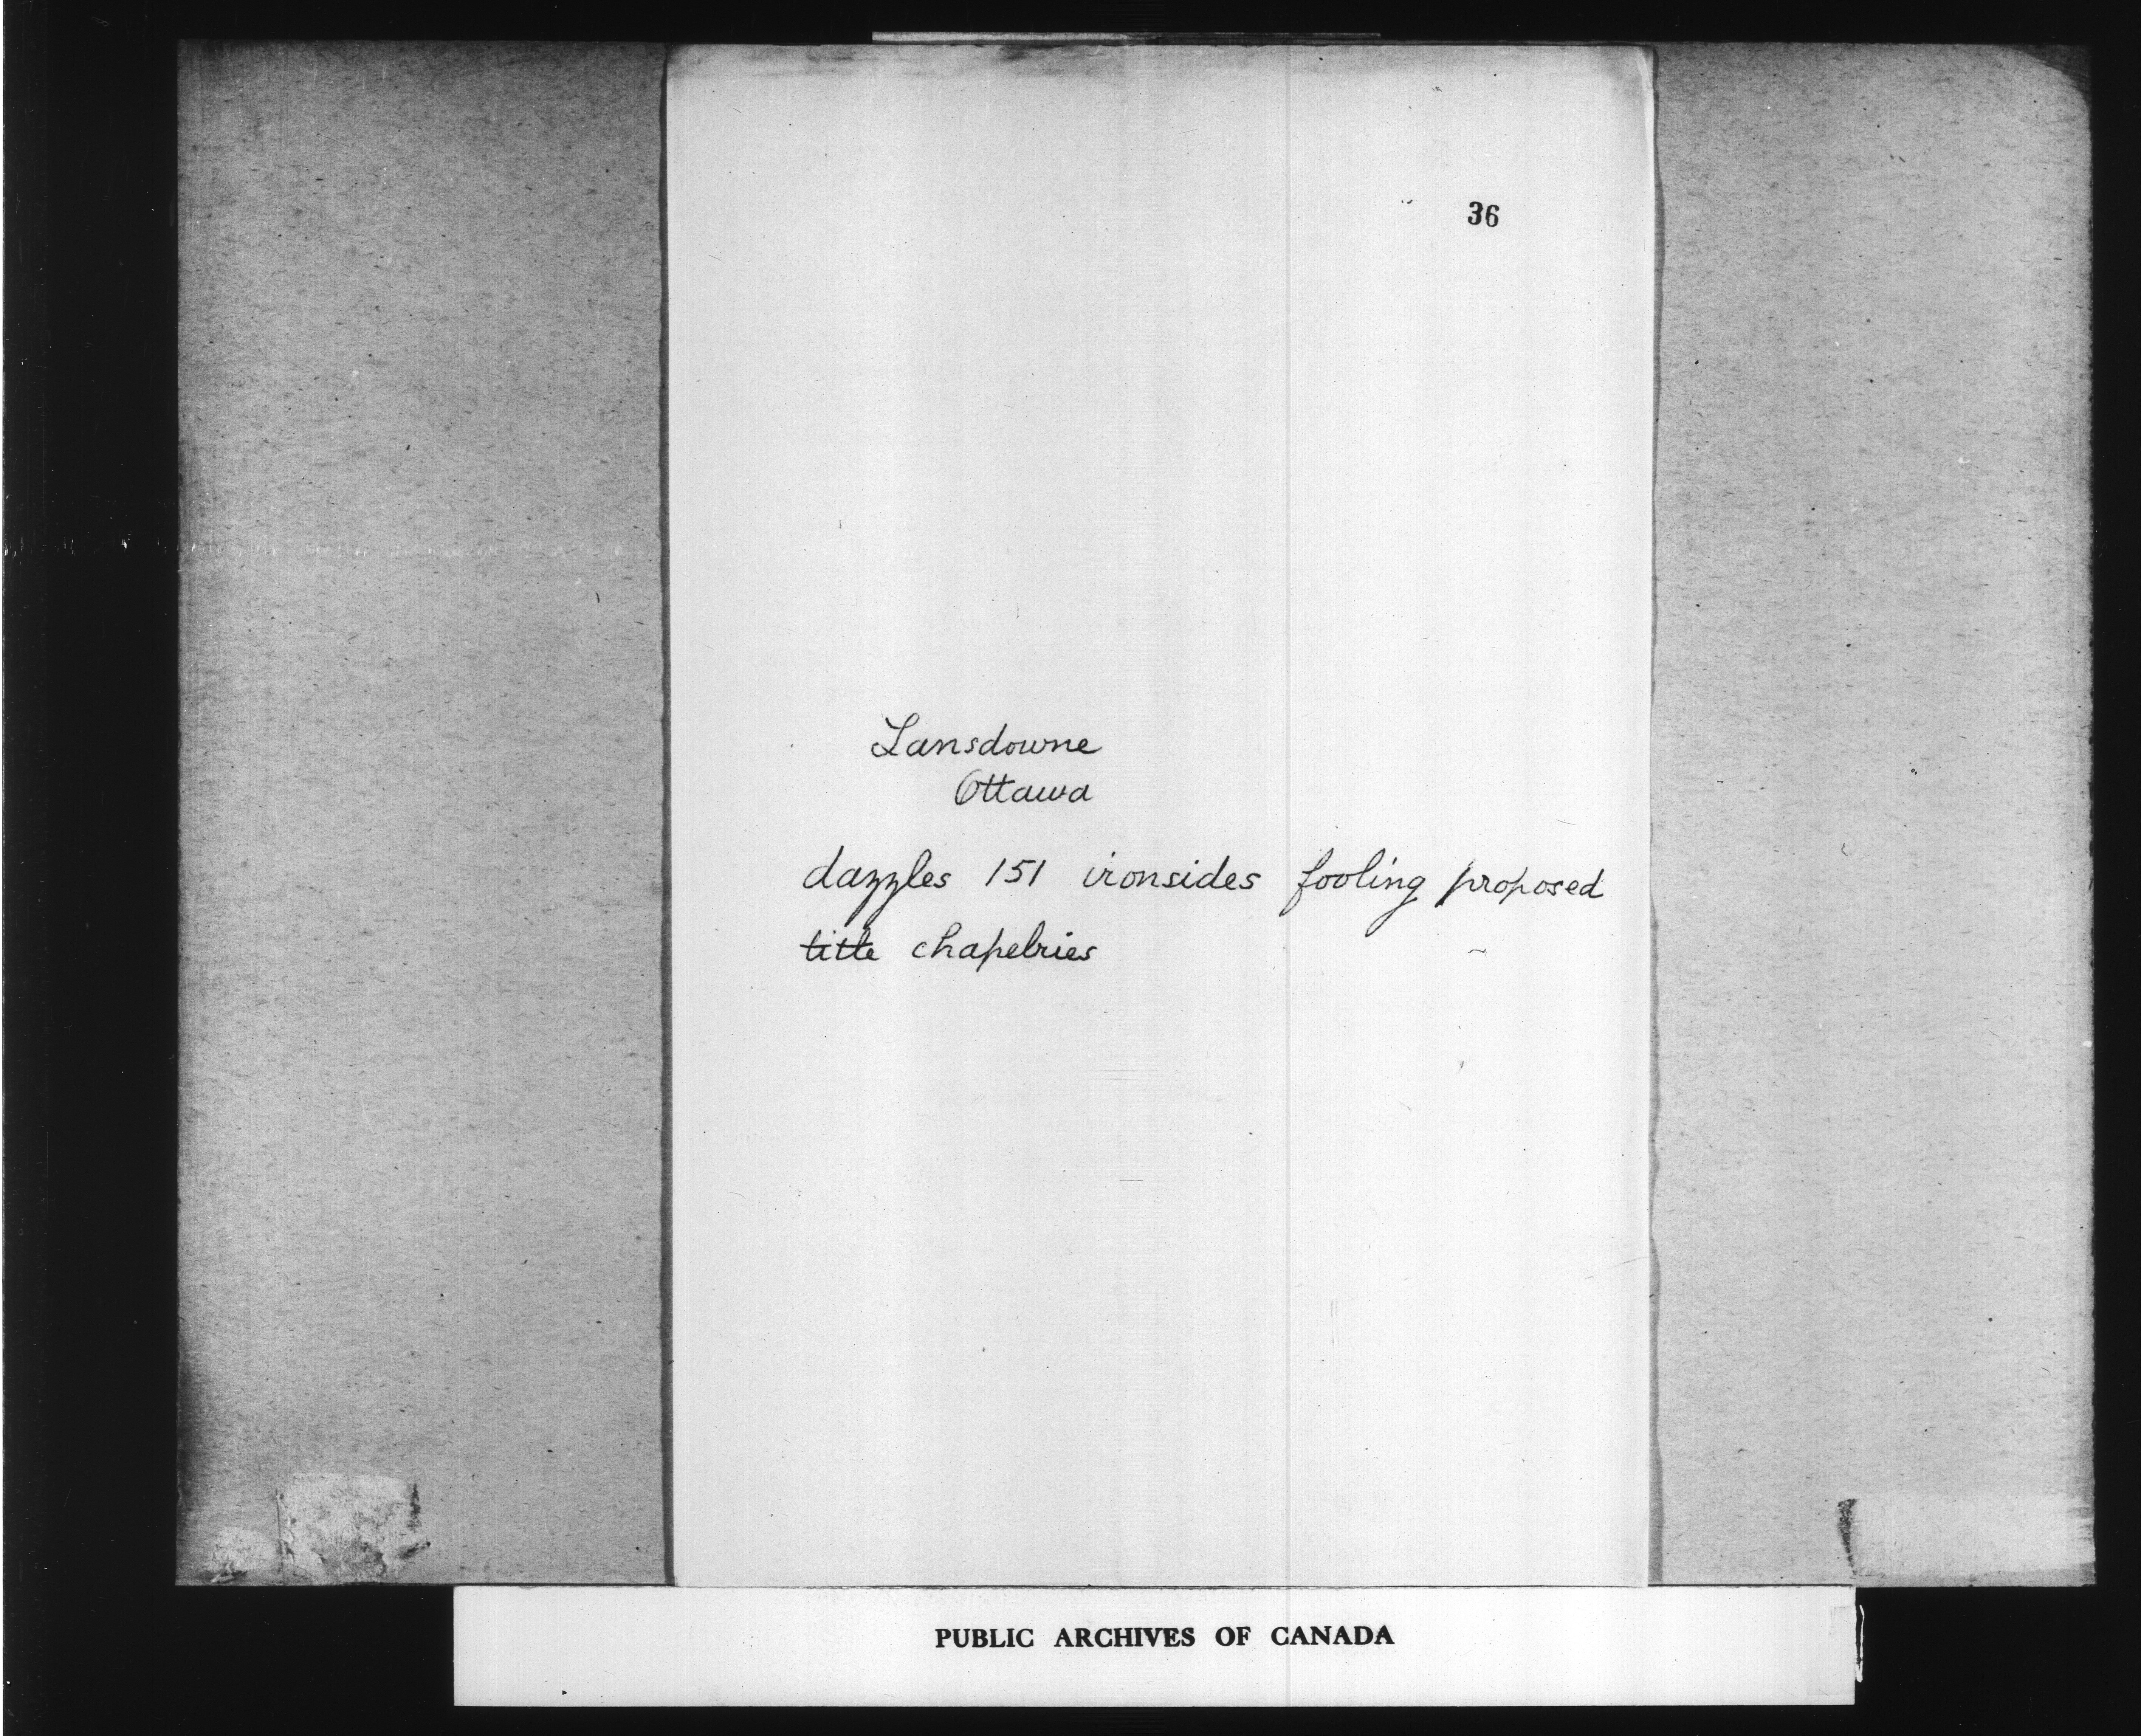 36
Lansdowne
Ottawa
dazzles 151 ironsides fooling proposed
title chapelries
PUBLIC ARCHIVES OF CANADA